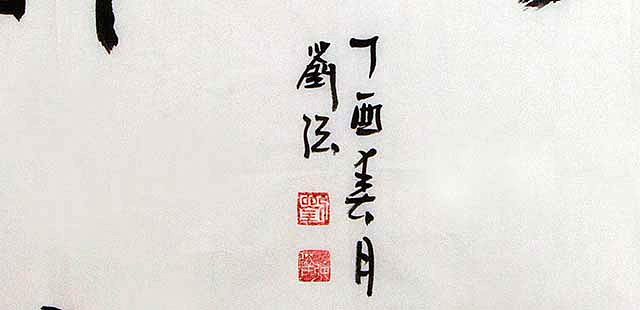 丁酉春月
劉